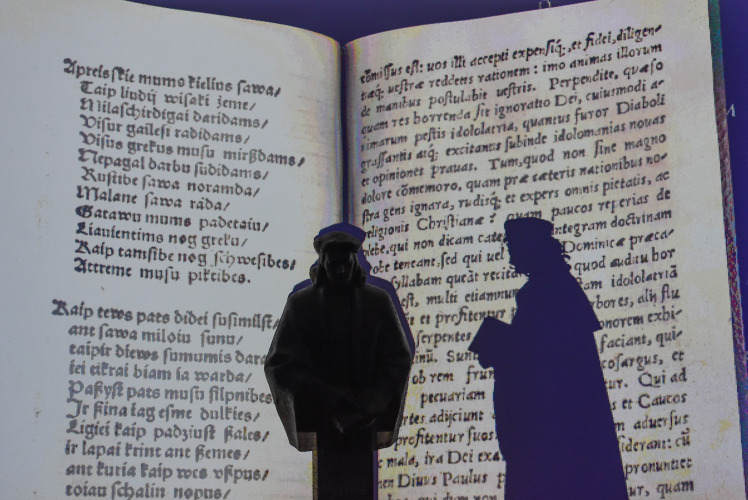 Apreisskie mumo kielius sawa/
Taip liudij wisaki zeme/
Milaschirdigai daridams/
Visur gailesi radidams/
Visus grekus musu mirßdams/
Nepagal darbu sudidams/
Rustibe sawa noramda/
Malane sawa rada/
Gatawu mums padetaiu/
Liauientims nog greku/
Kaip tamsibe nog schwesibes/
Atireme musu piktibes.
Kaip tews pats didei susimilst/
ant sawa miloiu sunu/
taipir diews sumumis dara
iei tikrai biam ia warda/
Paßyst pats musu silpnibes
Jr ßina iag esme dulkies/
Ligiei kaip padziust ßales/
ir lapai krint ant ßemes/
ant kuria kaip wes vßpus/
toiau schalin nopus/
cõmissus est: uos illi accepti expensiq;, et fidei, diligen-
tiæq; uestræ reddens rationem: imo animas illorum
de manibus postulabit uestris. Perpendite, quæso
quam res horrenda sit ignoratio Dei, cuiusmodi a-
nimarum pestis idololatria, quantus furor Diaboli
grassantis atq; excitantis subinde idolomanias nouas
et opiniones prauas. Tum, quod non sine magno
dolore cõmemoro, quam præ cæteris nationibus no-
stra gens ignara, rudisq; et expers omnis pietatis, ac
religionis Christianæ? quam paucos reperias de
plebe, qui non dicam cate integram doctrinam
probe teneant, sed qui uel Dominicæ præca-
syllabam queãt recita quod auditu hor
est, multi etiamnum am idololatriã
et profitentur rbores, alij flu
serpentes onorem exhi-
Sun faciant, qui-
ob rem fru cosargus, et
pecuariam ur. Qui ad
rtes adijciunt s et Caucos
profitentur suos aduersus
mala, ira Dei exa siderant: cũ
nen Diuus Paulus pronunciet
M